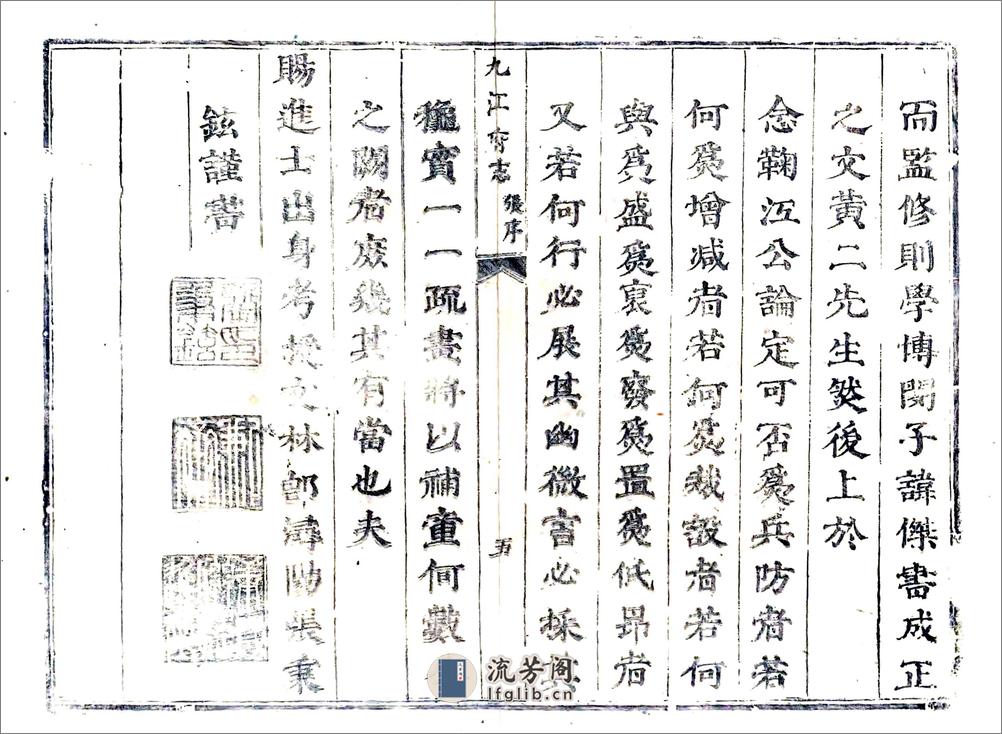 而監修則學博閔子諱傑書成正
之文黃二先生然後上於
念鞠江公論定可否為兵防者若
何為增減者若何為裁設者若何
與為盛為衰為廢為置為低昻者
又若何行必展其幽微言必採其
九江府志 張序 五
穠實一一疏畫將以補童何數
之闕者庻幾其有當也夫
賜進士出身考授文林郎潯陽張秉
鉉謹書
流芳阁
lfglib.cn